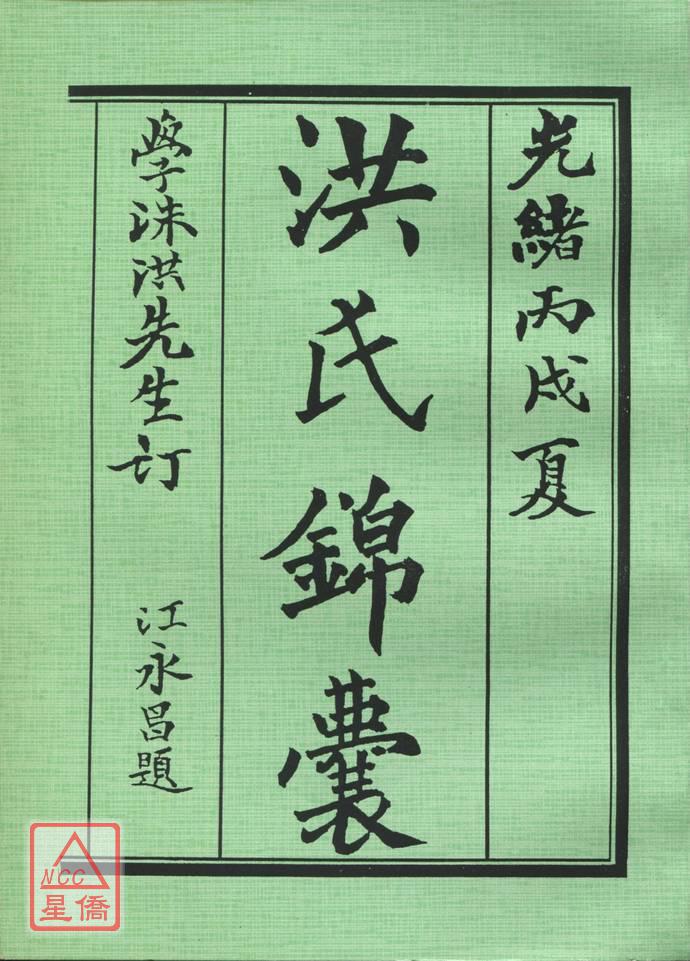 光緒丙戌夏
洪氏錦囊
學洙洪先生訂
江永昌題
NCC
星僑